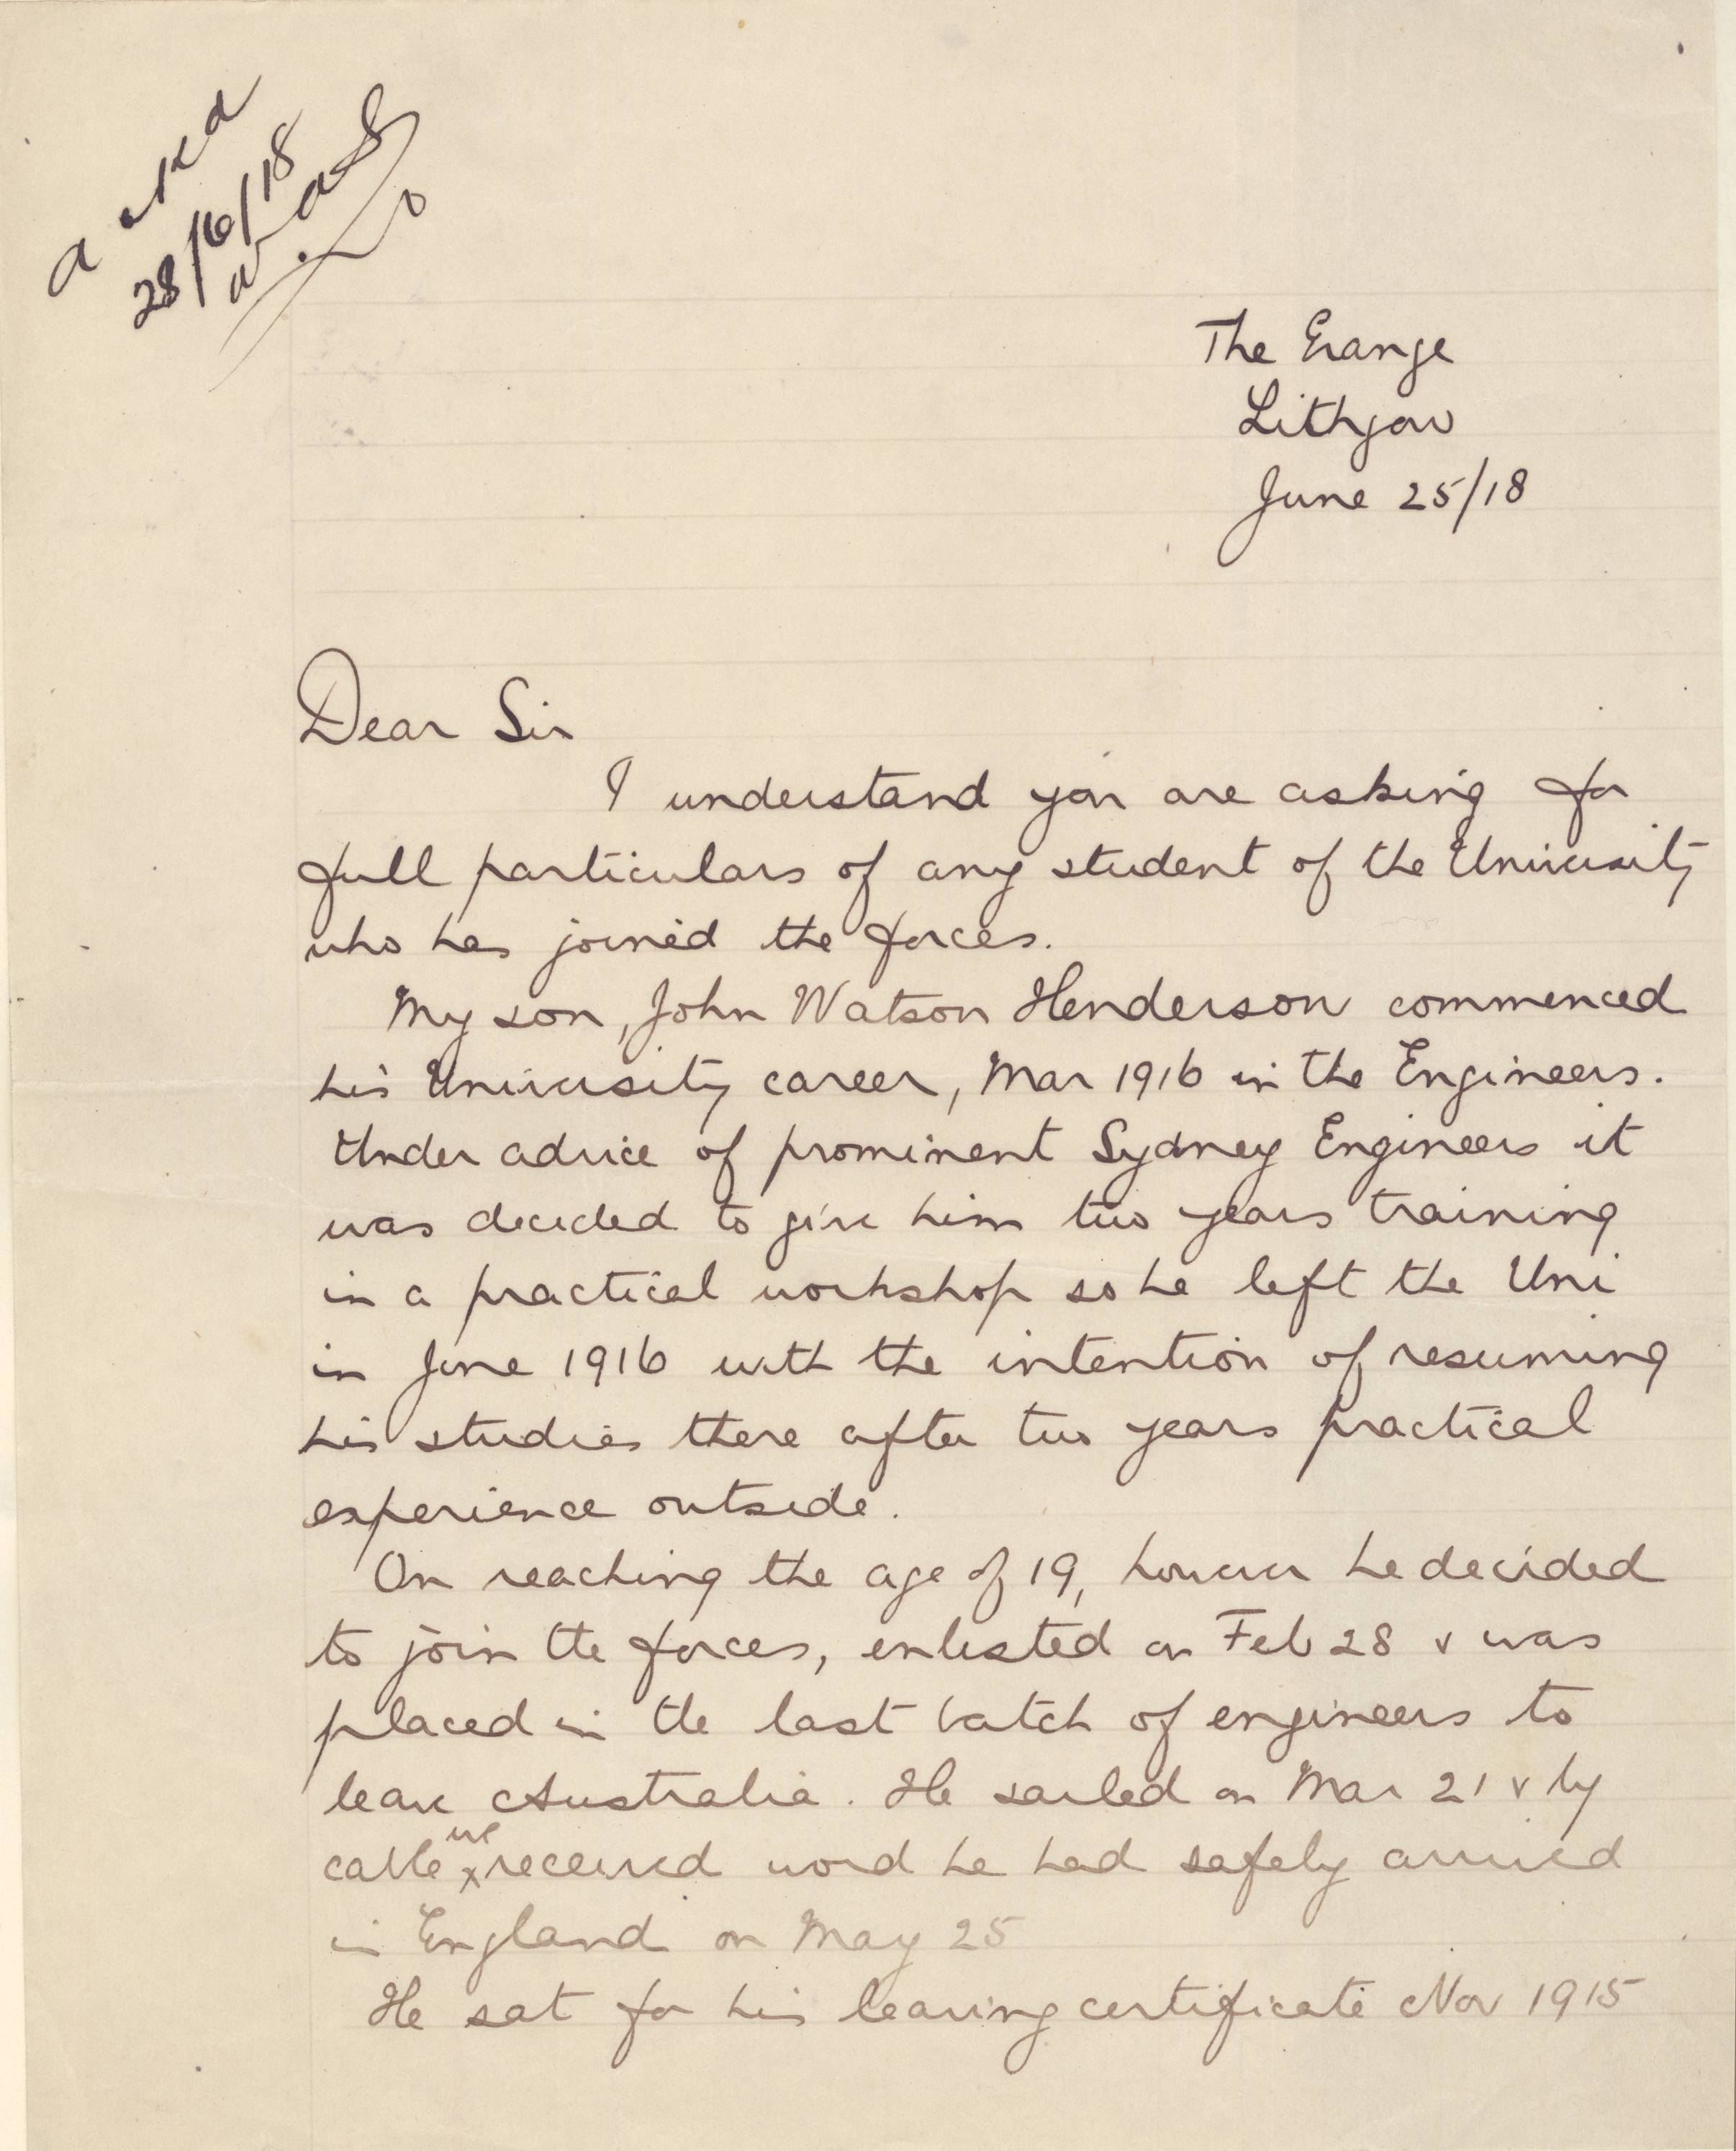 ackd
28/6/18
The Grange
Lithgow
June 25/18
Dear Sir
I understand you are asking for
full particulars of any student of the University
who has joined the forces.
My son, John Watson Henderson commenced
his University career, Mar 1916 in the Engineers.
Under advice of prominent Sydney Engineers it
was decided to give him two years training
in a practical workshop so he left the Uni
in June 1916 with the intention of resuming
his studies there after two years practical
experience outside.
On reaching the age of 19, however he decided
to join the forces, enlisted on Feb 28 & was
placed in the last batch of engineers to
leave Australia. He sailed on Mar 21 & by
cable we received word he had safely arrived
in England on May 25
He sat for his leaving certificate Nov 1915